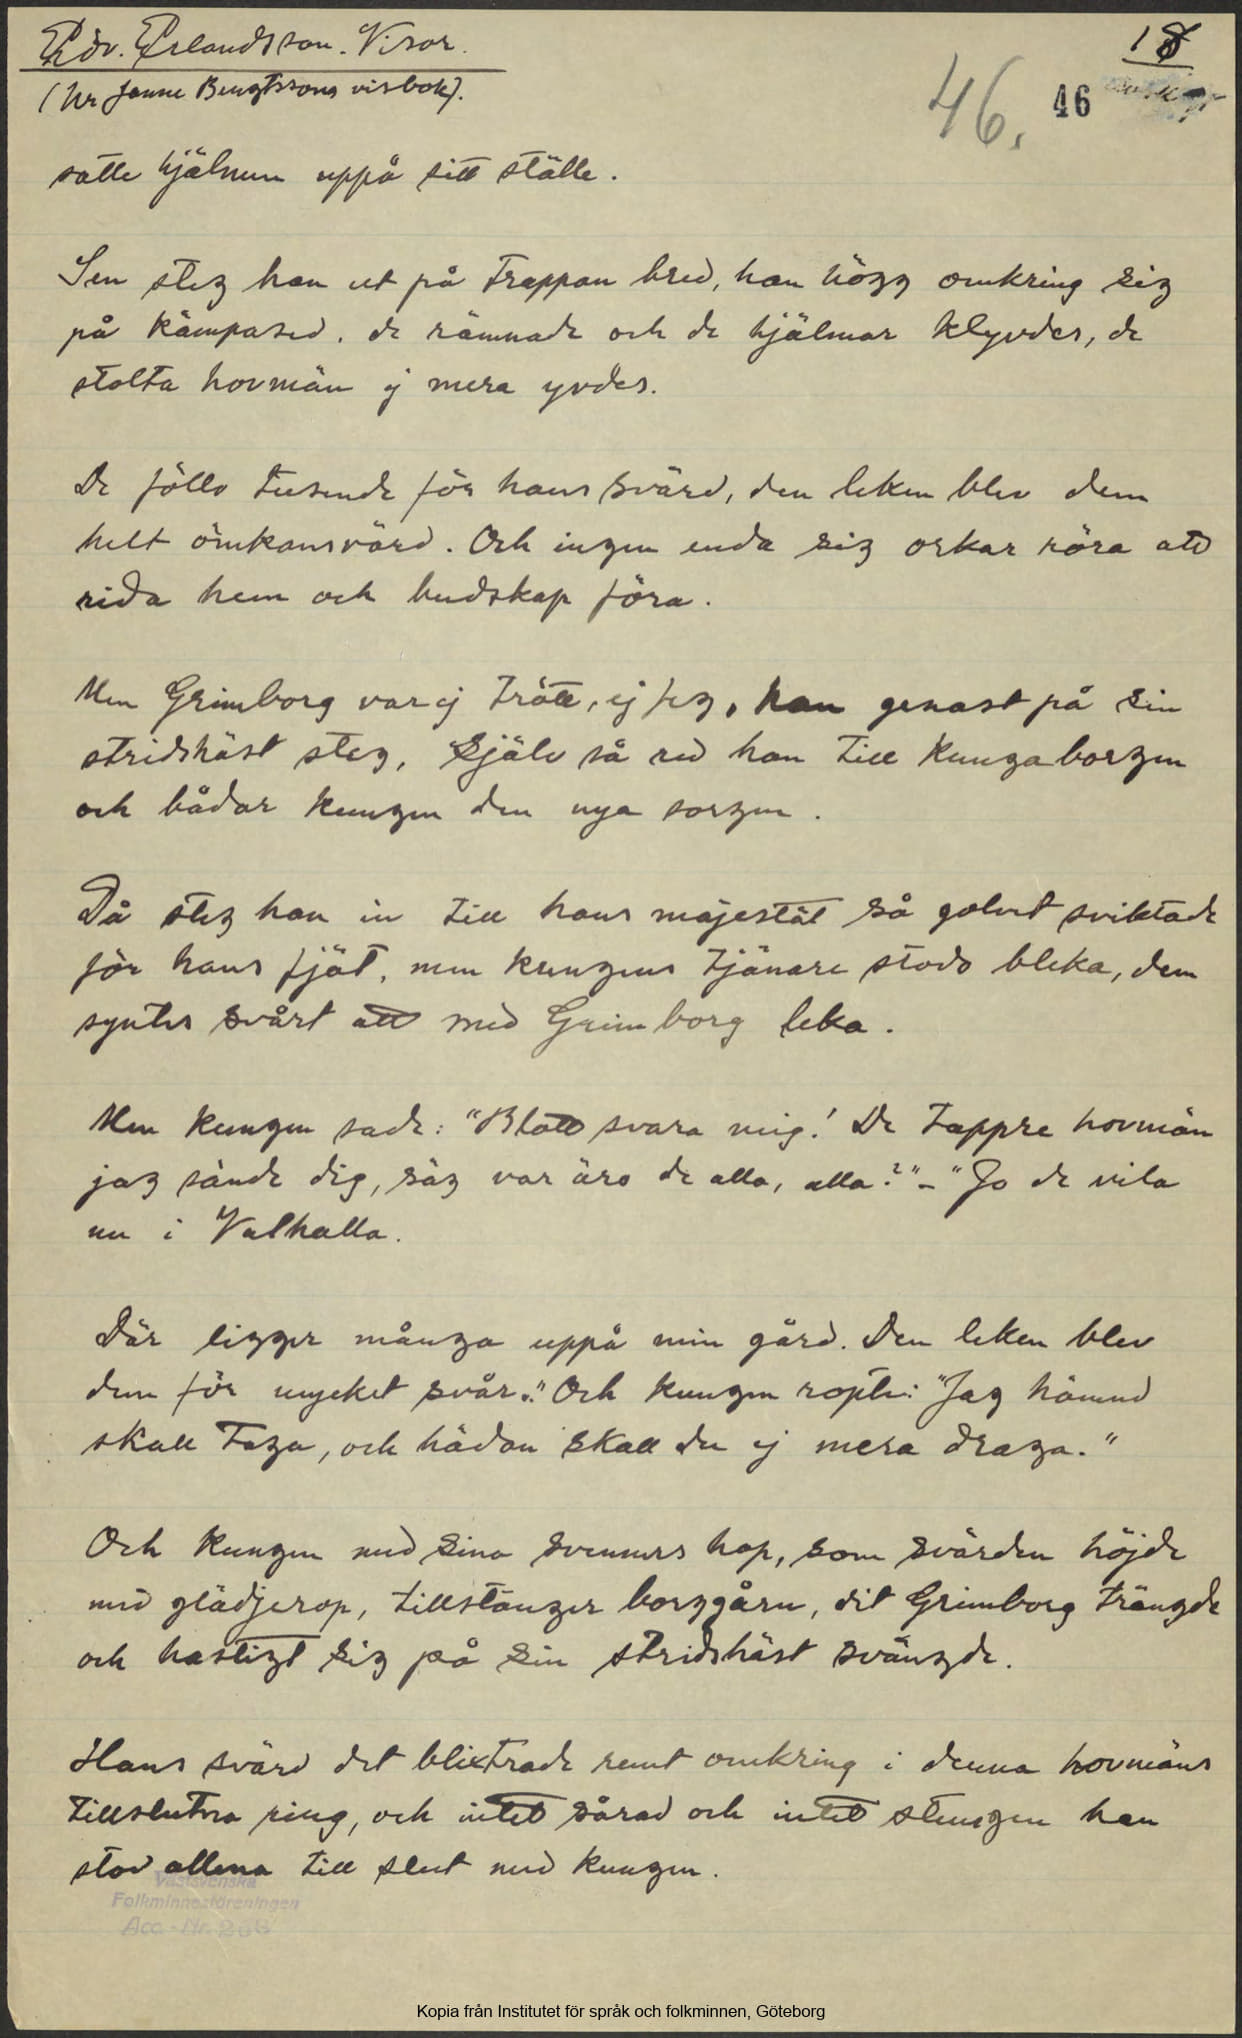 Edv. Erlandsson. Visor.
(Ur Janne Bengtssons visbok).
18
46. 46
satte hjälmen uppå sitt ställe.
Sen steg han ut på trappan bred, han högg omkring sig
på kämpased. de rämnade och de hjälmar klyvdes, de
stolta hovmän ej mera yvdes.
De föllo tusende för hans svärd, den leken blev dem
helt ömkansvärd. Och ingen enda sig orkar röra att
rida hem och budskap föra.
Men Grimborg var ej trött, ej feg, han genast på sin
stridshäst steg, själv så red han till kungaborgen
och bådar kungen den nya sorgen.
Då steg han in till hans majestät så golvet sviktade
för hans fjät, men kungens tjänare stodo bleka, dem
syntes svårt att med Grimborg leka.
Men kungen sade: "Blott svara mig! De tappre hovmän
jag sände dig, säg var äro de alla, alla?" - "Jo de vila
nu i Valhalla.
Där ligger många uppå min gård. Den leken blev
dem för mycket svår." Och kungen ropte: "Jag hämnd
skall taga, och hädan skall du ej mera draga."
Och kungen med sina svenners hop, som svärden höjde
med glädjerop, tillstänger borggårn, dit Grimborg trängde
och hastigt sig på sin stridshäst svängde.
Hans svärd det blixtrade runt omkring i denna hovmäns
tillslutna ring, och intet sårad och intet stungen han
stod allena till slut med kungen.
Västsvenska
Folkminnesföreningen
Acc.-Nr. 208
Kopia från Institutet för språk och folkminnen, Göteborg